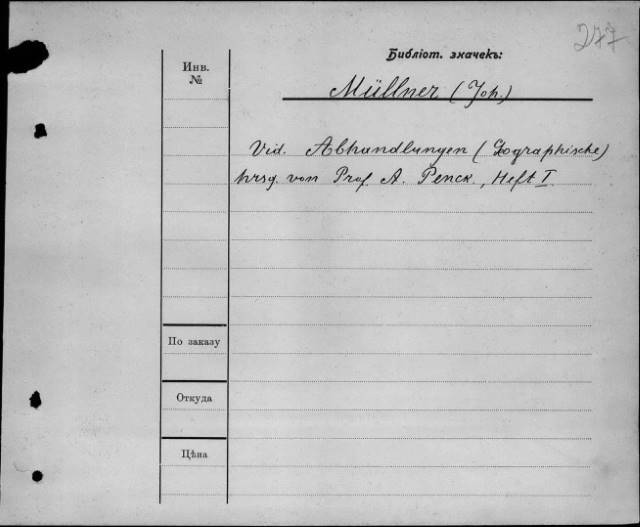 277
Библіот. значекъ:
Инв.
№
Müllner (Joh.)
Vid. Abhandlungen (Geographische)
hrsg. von Prof. A. Penck., Heft I.
По заказу
Откуда
Цѣна